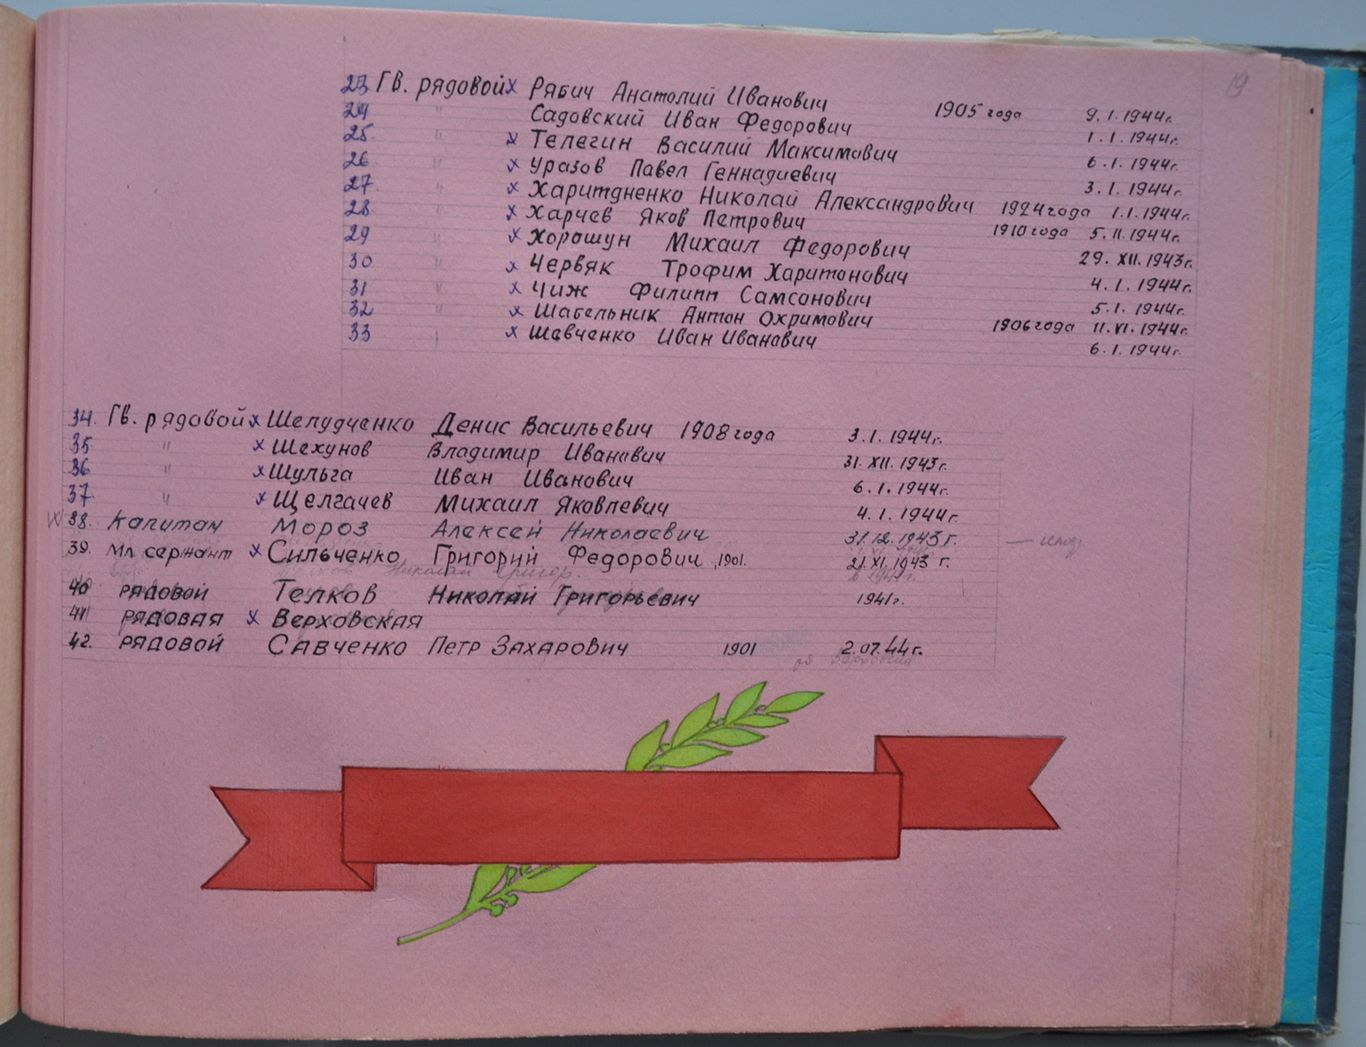 19
23 Гв. рядовой х Рябич Анатолий Иванович 1905 года 9.1.1944г.
24 " Садовский Иван Федорович 1.1.1944г.
25 " х Телегин Василий Максимович 6.1.1944г.
26 " х Уразов Павел Геннадиевич 3.1.1944г.
27 " х Харитдненко Николай Александрович 1924 года 1.1.1944г.
28 " х Харчев Яков Петрович 1910 года 5.II.1944г.
29 " х Хорошун Михаил Федорович 29.XII.1943г.
30 " х Червяк Трофим Харитонович 4.1.1944г.
31 " х Чиж Филипп Самсонович 5.1.1944г.
32 " х Шагельник Антон Охримович 1906 года 11.VI.1944г.
33 " х Шевченко Иван Иванович 6.1.1944г.
34. Гв. рядовой х Шелудченко Денис Васильевич 1908 года 3.1.1944г.
35 " х Шехунов Владимир Иванович 31.XII.1943г.
36 " х Шульга Иван Иванович 6.1.1944г.
37 " х Щелгачев Михаил Яковлевич 4.1.1944г.
38. Капитан Мороз Алексей Николаевич 31.12.1943г.
39. Мл сержант х Сильченко Григорий Федорович 1901. 21.XI.1943 г.
40 рядовой Телков Николай Григорьевич 1941г.
41 рядовая х Верховская
42. рядовой Савченко Петр Захарович 1901 2.07.44г.